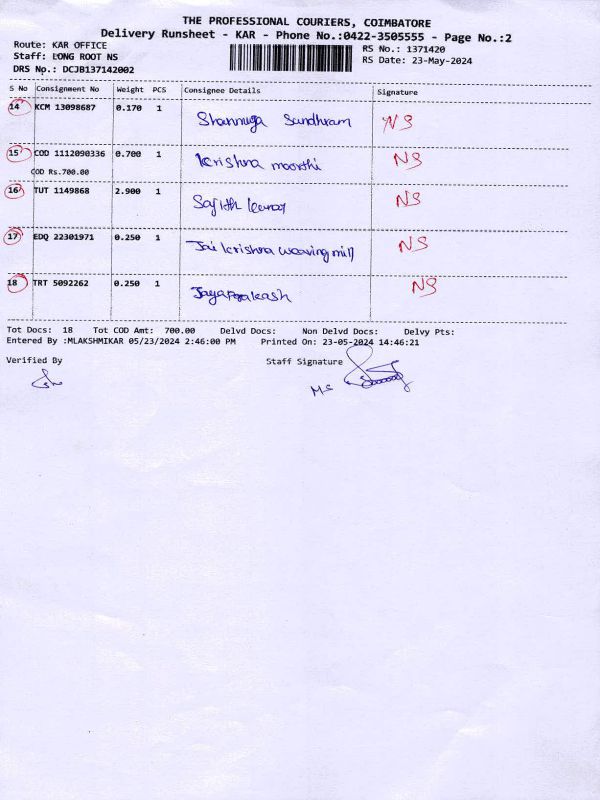 THE PROFESSIONAL COURIERS, COIMBATORE
Delivery Runsheet - KAR - Phone No.:0422-3505555 - Page No.:2
Route: KAR OFFICE
RS No.: 1371420
Staff: LONG ROOT NS
RS Date: 23-May-2024
DRS No.: DCJB137142002
S No Consignment No Weight PCS Consignee Details Signature
14 KCM 13098687 0.170 1 Shanmuga Sundhram NS
15 COD 1112090336 0.700 1 Krishna moorthi NS
COD Rs.700.00
16 TUT 1149868 2.900 1 Sajith NS
17 EDQ 22301971 0.250 1 Jai krishna weaving mill NS
18 TRT 5092262 0.250 1 Jayaprakash NS
Tot Docs: 18 Tot COD Amt: 700.00 Delvd Docs: Non Delvd Docs: Delvy Pts:
Entered By :MLAKSHMIKAR 05/23/2024 2:46:00 PM Printed On: 23-05-2024 14:46:21
Verified By Staff Signature